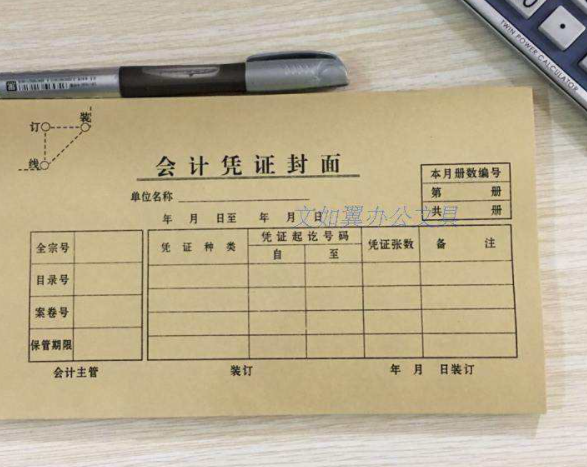 TWIN POWER CALCULATOR
装
订
线
会计凭证封面
单位名称
本月册数编号
第 册
共 册
年 月 日至 年 月 日
文如翼办公文具
全宗号
目录号
案卷号
保管期限
凭证种类 凭证起讫号码 凭证张数 备注
自 至
会计主管 装订 年 月 日装订